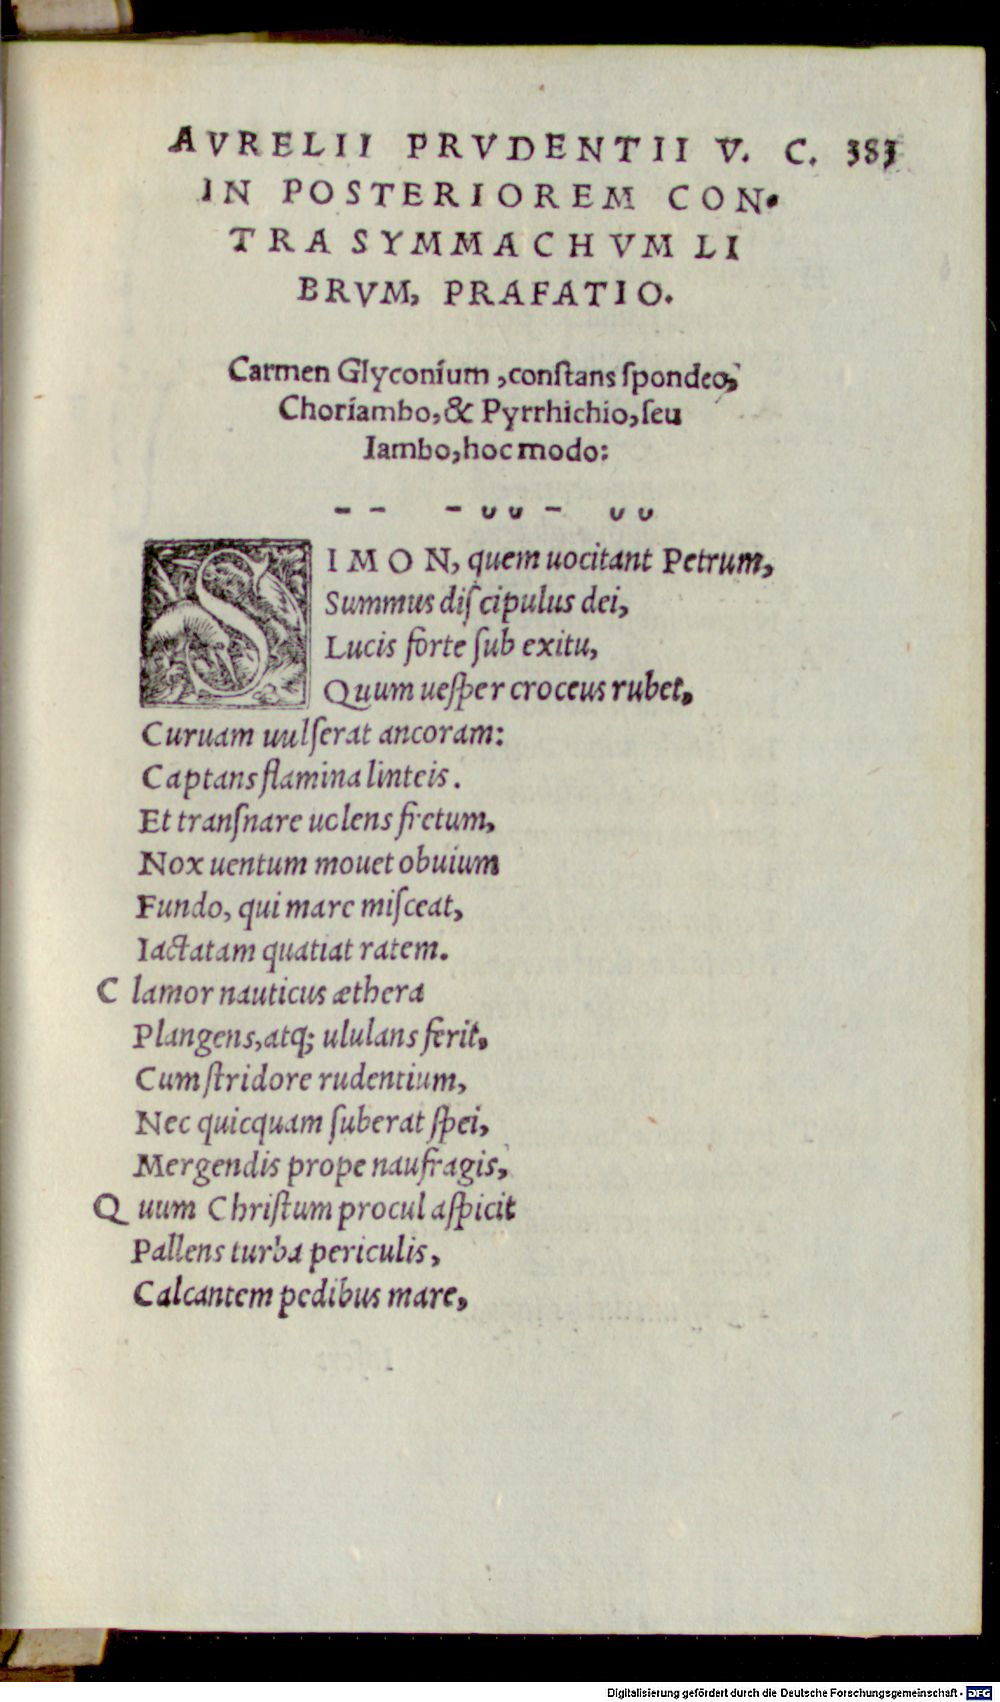 AVRELII PRVDENTII V. C. 383
IN POSTERIOREM CON-
TRA SYMMACHVM LI
BRVM, PRAFATIO.
Carmen Glyconium, constans spondeo,
Choriambo, & Pyrrhichio, seu
Iambo, hoc modo:
- - - ∪ ∪ - ∪ ∪
SIMON, quem uocitant Petrum,
Summus discipulus dei,
Lucis forte sub exitu,
Quum uesper croceus rubet,
Curuam uulserat ancoram:
Captans flamina linteis.
Et transnare uolens fretum,
Nox uentum mouet obuium
Fundo, qui mare misceat,
Iactatam quatiat ratem.
Clamor nauticus æthera
Plangens, atq; ululans ferit,
Cum stridore rudentium,
Nec quicquam suberat spei,
Mergendis prope naufragis,
Quum Christum procul aspicit
Pallens turba periculis,
Calcantem pedibus mare,
Digitalisierung gefördert durch die Deutsche Forschungsgemeinschaft - DFG